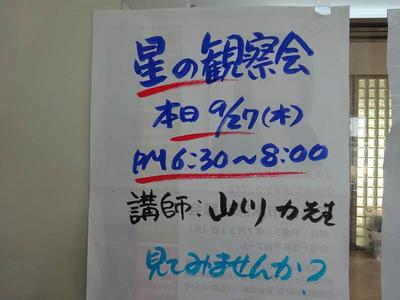 星の観察会
本日 9/27(木)
PM6:30〜8:00
講師:山川 力先生
見てみませんか?